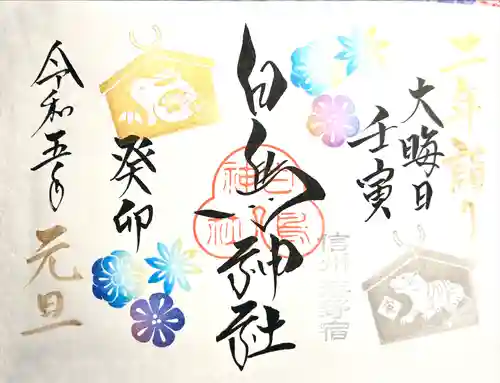 二年詣り
大晦日
壬寅
信州海野宿
白鳥神社
白鳥神社
癸卯
令和五年
元旦